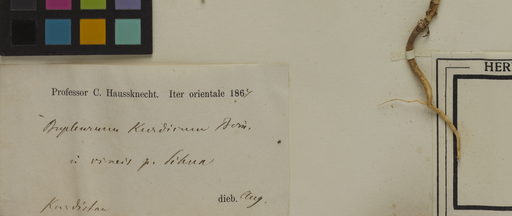 Professor C. Haussknecht. Iter orientale 1867
Bupleurum Kurdicum Boiss.
in vineis p. Sihna
dieb. Aug.
Kurdistan
HER